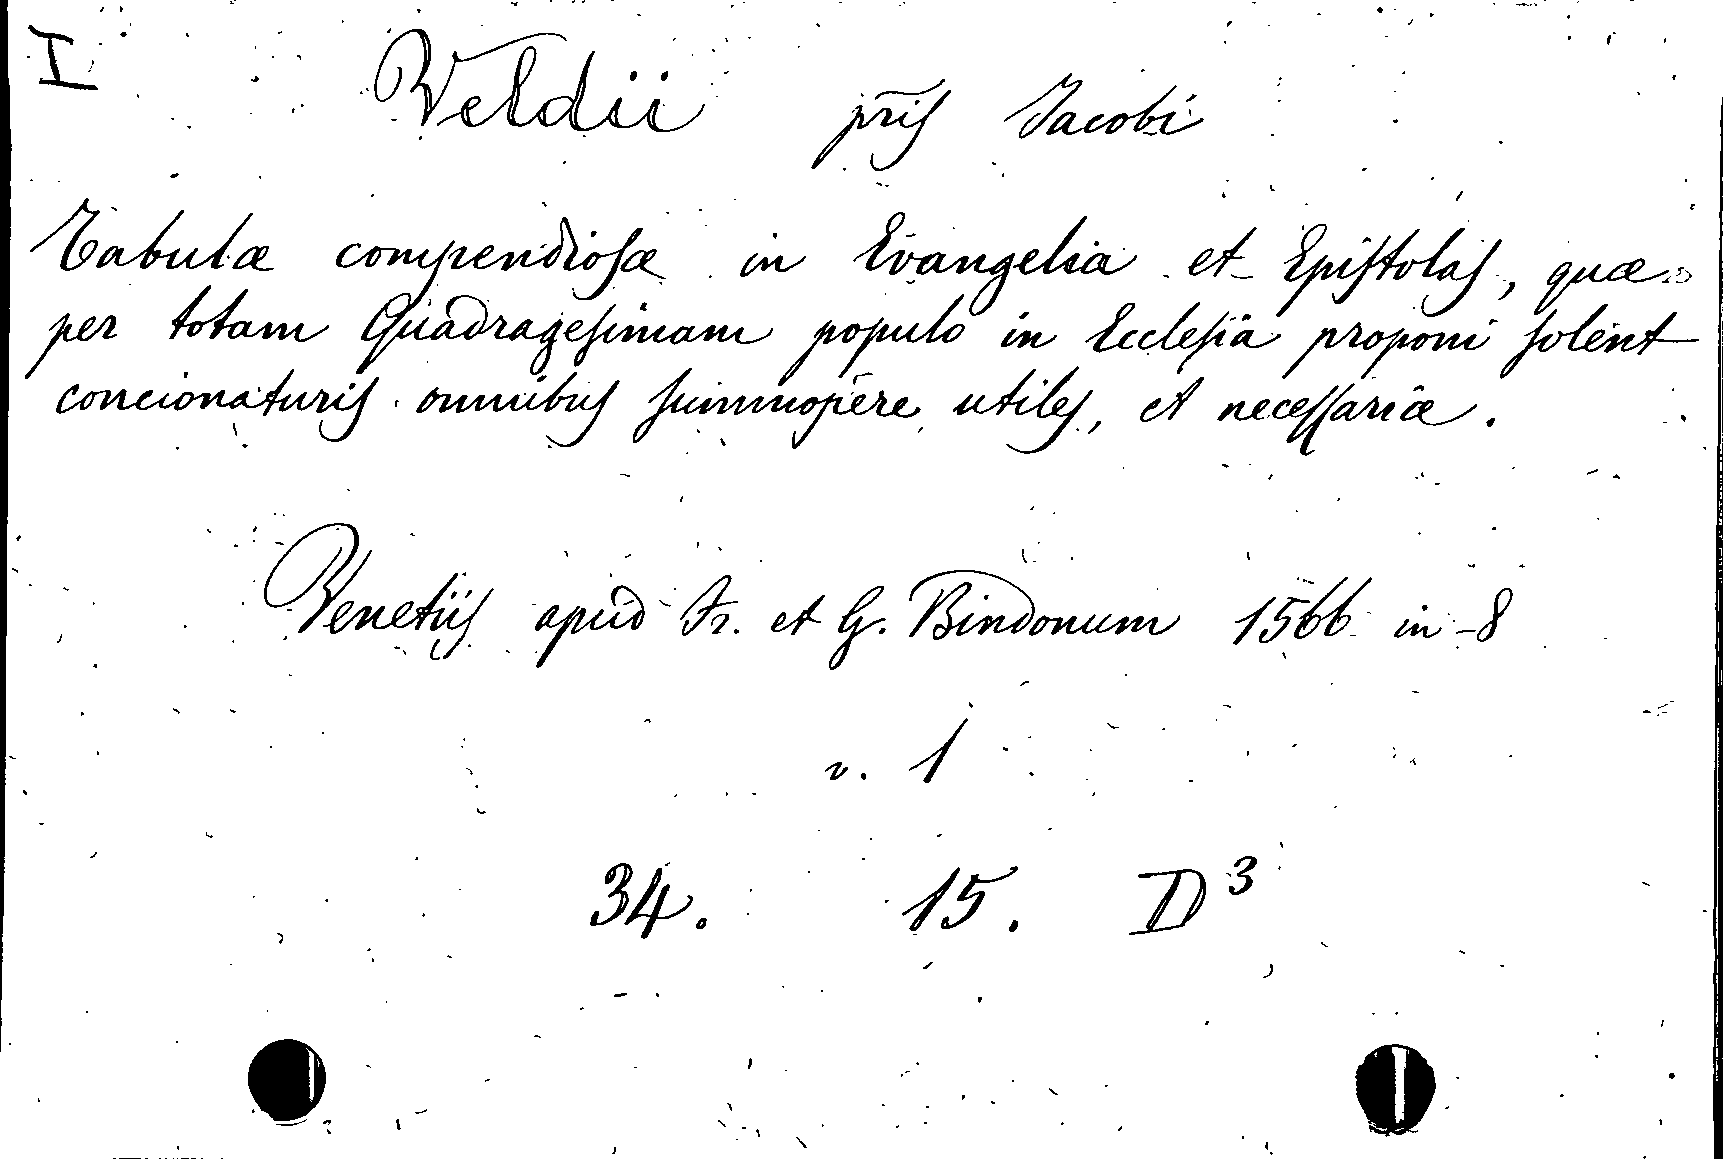 I
Veldii pris Jacobi
Tabulæ compendiosæ in Evangelia et Epistolas, quæ
per totam Quadragesimam populo in Ecclesia proponi solent
concionaturis omnibus summopere utiles, et necessariæ.
Venetiis apud Fr. et G. Bindonum 1566 in-8
v. 1
34. 15. D³